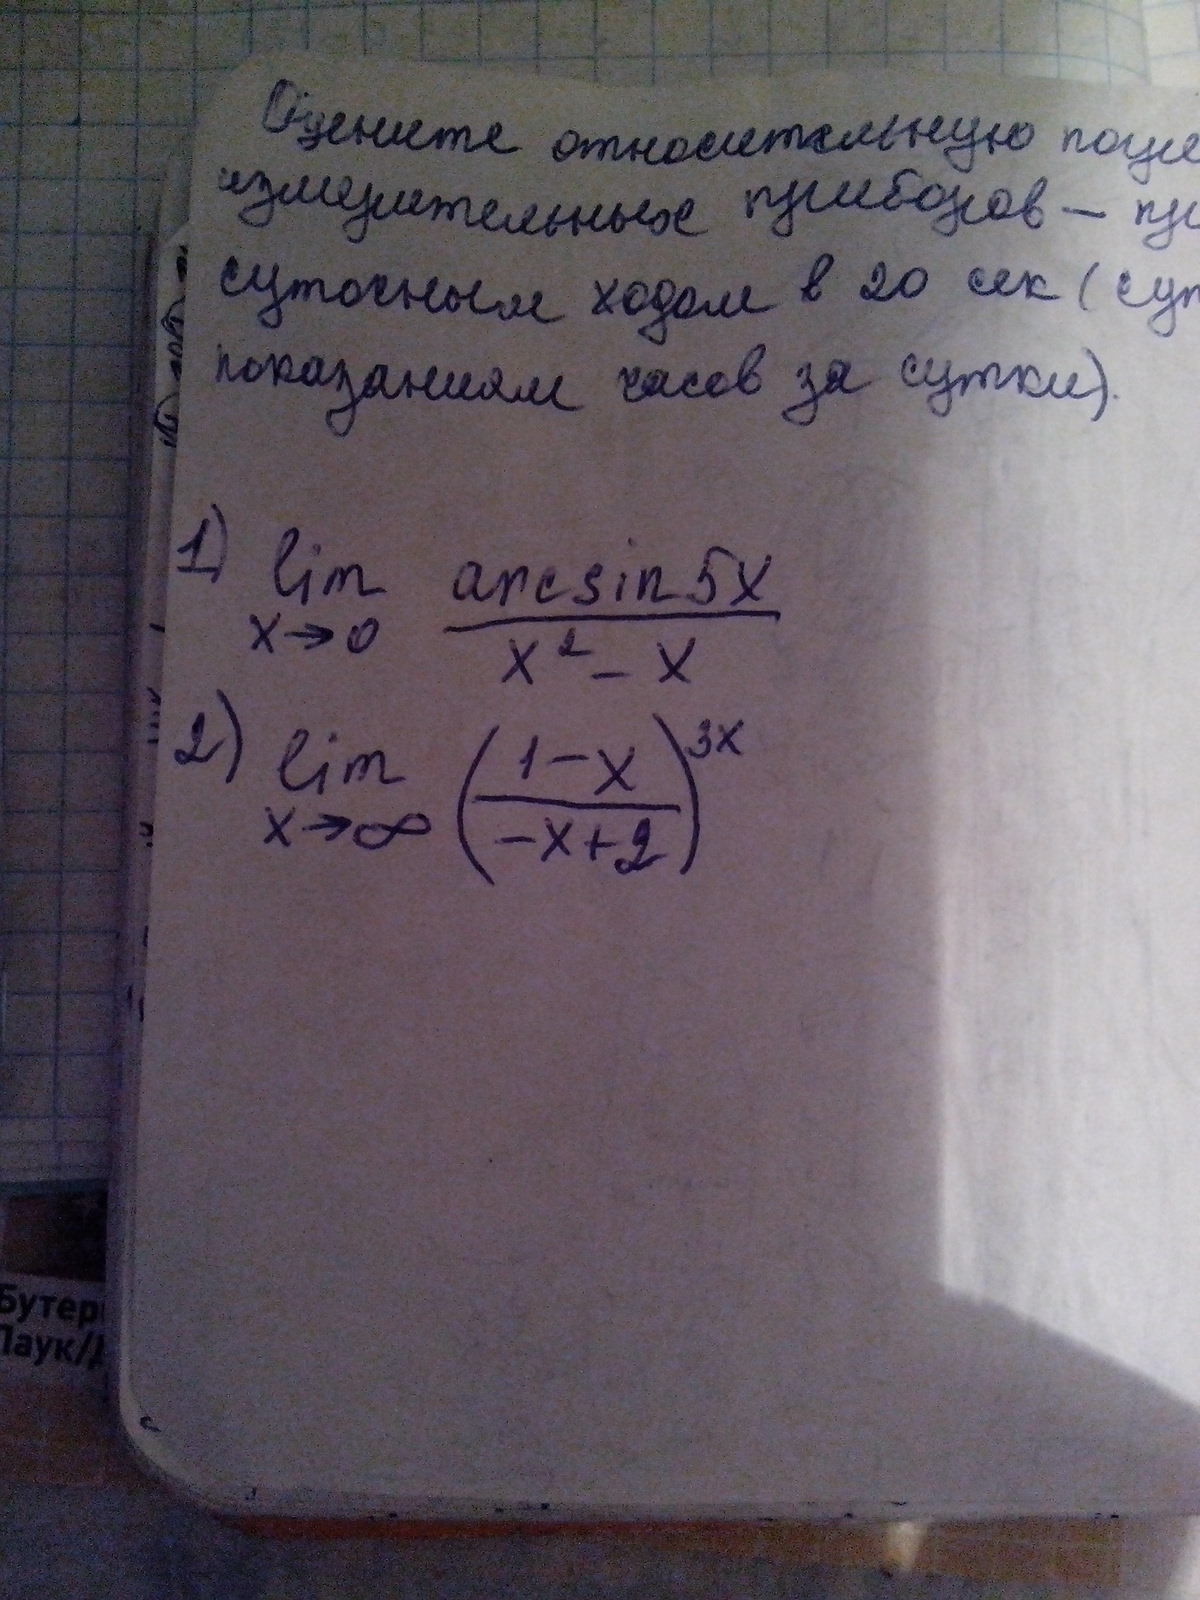 Оцените относительную поце
измерительных приборов –
суточным ходом в 20 сек (сут
показаниям часов за сутки).
1) lim arcsin5x
x→0 x² - x
2) lim (1-x)3x
x→∞ (-x+2)
Бутер
Паук/